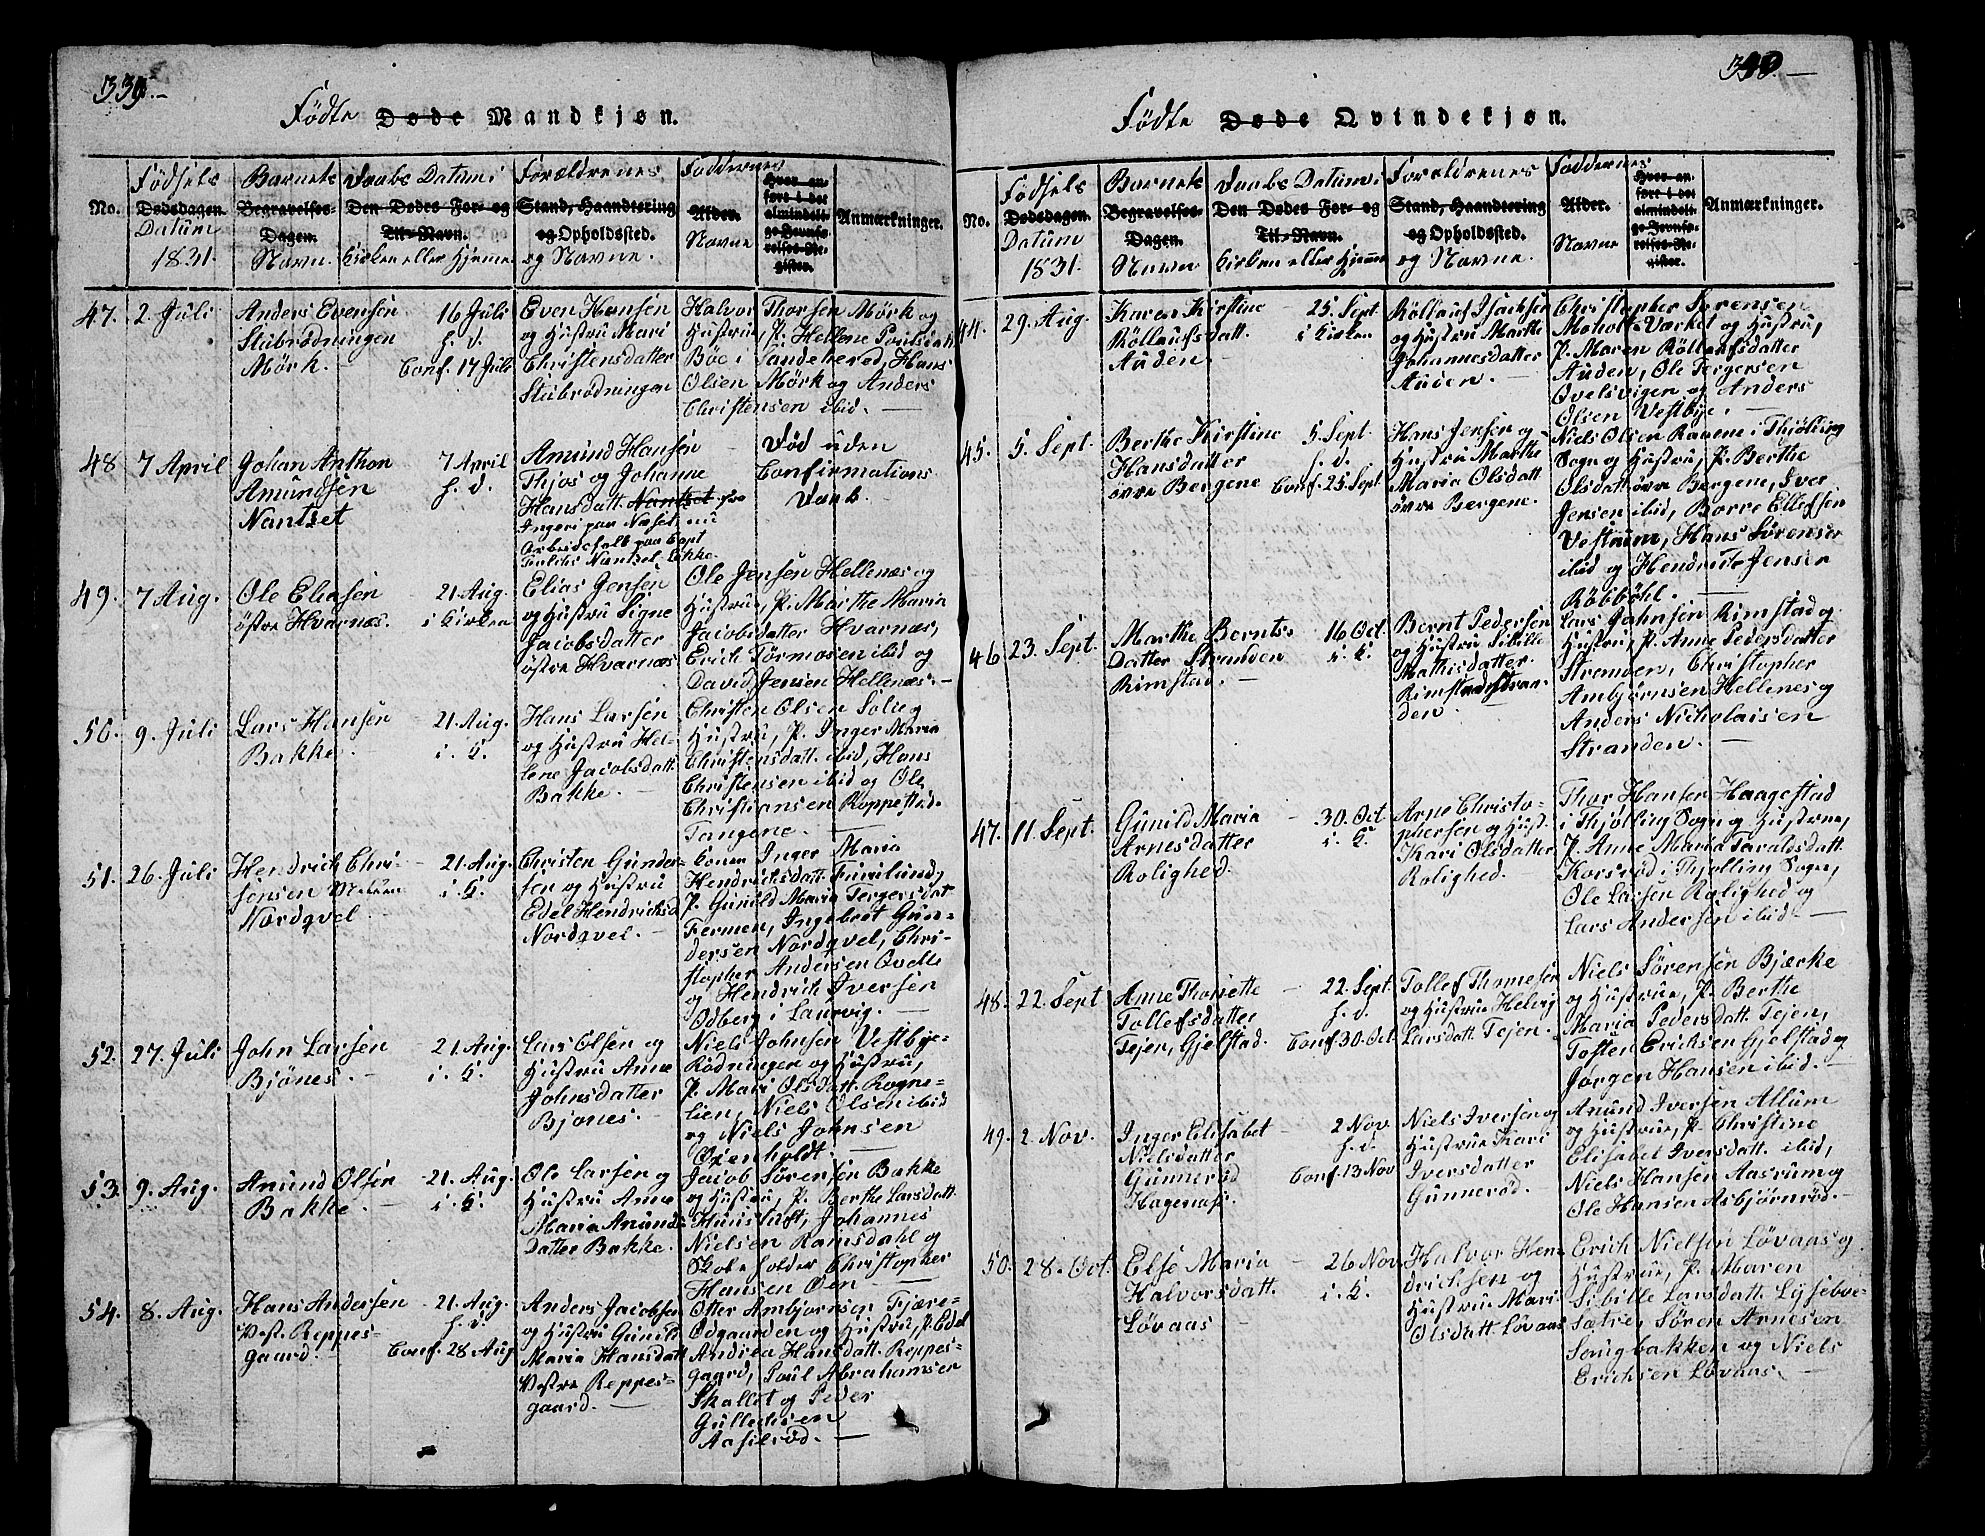 339.
Födte Døde Mandkjøn.
No.
Födsels
Dødsdagen.
Datum
1831.
Barnets
Begravelses-
Dagen.
Navn.
Daabs Datum i
Den Dødes For- og
Til-Navn.
Kirken eller Hjemme
Forældrenes
Stand, Haandtering
og Opholdssted.
og Navne.
Faddernes
Alder.
Navne
Hvor an-
ført i det
almindeli-
ge Jevnfø-
relses-Re-
gister.
Anmærkninger.
47. 2. Juli
Anders Evensen
Stubrödningen
Mörk.
16 Juli
h. d.
Conf. 17 Juli
Even Hansen
og Hustru Mari
Christensdatter
Stubrödningen
Halvor Thorsen Mörk og
Hustru, P. Hellene Poulsdatt
Böe i Sandeherred, Hans
Olsen Mörk og Anders
Christensen ibid.
48 7 April
Johan Anthon
Amundsen
Nantset
7 April
h. d.
Amund Hansen
Thjos og Johanne
Hansdatt. Nantset fra
Ingeri paa Næset, nu
Arbeidsfolk paa Capt
Nantset Løkke.
Död uden
Confirmations
Daab.
49. 7 Aug.
Ole Eliasen
östre Hvarnæs.
21 Aug.
i Kirken
Elias Jensen
og Hustru Signe
Jacobsdatter
östre Hvarnæs
Ole Jensen Hellenæs og
Hustrue, P. Marthe Maria
Jacobsdatter Hvarnæs,
Erich Tormosen ibid og
David Jensen Hellenæs.
50. 9. Juli
Lars Hansen
Bakke.
21. Aug.
i. K.
Hans Larsen
og Hustru Hel-
lene Jacobsdatt.
Bakke.
Christen Olsen Solie og
Hustru, P. Inger Maria
Christensdatt. ibid, Hans
Christensen ibid og Ole
Christiansen Roppestad-
Tangene.
51. 26. Juli
Hendrich Chri-
stensen
Nordqvel
21 Aug.
i. K.
Christen Gunder-
sen og Hustru
Edel Hendrichsd
Nordqvel.
Conen Inger Maria
Hendrichsdatt. Furulund,
P. Gunild Maria Tergersdat
Fermen, Ingebret Gun-
dersen Nordqvel, Chri-
stopher Andersen Qvelle
og Hendrich Iversen
Odberg i Laurvig.
52. 27. Juli
John Larsen
Bjönes.
21. Aug.
i. K.
Lars Olsen og
Hustru Anne
Johnsdatter
Bjönes.
Niels Johnsen Vestbye-
Rödningen og Hustru,
P. Mari Olsdatt. Rogne-
lien, Niels Olsen ibid
og Niels Johnsen
Oxenholdt.
53. 9. Aug.
Amund Olsen
Bakke.
21. Aug.
i. K.
Ole Larsen og
Hustru Anne
Maria Amunds
Datter Bakke.
Jacob Sörensen Bakke
og Hustru, P. Berthe Larsdatt.
Johannes
Nielsen Ramsdahl og
Skoleholder Christopher
Hansen Öen
54. 8. Aug.
Hans Andersen
Vest. Reppes-
gaard.
21. Aug.
h. d.
Conf. 28 Aug
Anders Jacobsen
og Hustru Gunild
Maria Hansdatt
Vestre Reppes-
gaard.
Otter Ambjørnsen Tjære-
Odgaarden og Hustru, P. Edel
Andrea Hansdatt. Reppes-
gaard, Poul Abrahamsen
Skallet og Peder
Gullichsen
Aasilröd.
340.
Födte Døde Qvindekjøn.
No.
Födsels
Dødsdagen.
Datum
1831.
Barnets
Begravelses-
Dagen.
Navn
Daabs Datum i
Den Dødes For- og
Til-Navn.
Kirken eller Hjemme
Forældrenes
Stand, Haandtering
og Opholdssted.
og Navne.
Faddernes
Alder.
Navne
Hvor an-
ført i det
almindeli-
ge Jevnfø-
relses-Re-
gister.
Anmærkninger.
44. 29. Aug.
Karen Kirstine
Röllaufsdatt.
Auden
25. Sept.
i Kirken
Röllauf Isachsen
og Hustru Marthe
Johannesdatter
Auden.
Christopher Sörensen
Moholt-Værket og Hustru,
P. Maren Röllaufsdatter
Auden, Ole Tergersen
Ovelsvigen og Anders
Olsen Vestbye.
45. 5. Sept.
Berthe Kirstine
Hansdatter
övre Bergene
5. Sept.
h. d.
Conf. 25. Sept.
Hans Jensen og
Hustru Marthe
Maria Olsdatt
övre Bergene.
Niels Olsen Ravene i Thjölling
Sogn og Hustru, P. Berthe
Olsdatt. övre Bergene, Iver
Jensen ibid, Borre Ellefsen
Vestrum, Hans Sörensen
ibid og Hendrich Jensen
Röbböhl.
46 23. Sept.
Marthe Bernts-
Datter Stranden
Rimstad.
16 Oct.
i. K.
Bernt Pedersen
og Hustru Sibille
Mathisdatter
Rimstadstran-
den.
Lars Johnsen Rimstad og
Hustru, P. Anne Pedersdatter
Stranden, Christopher
Ambjörnsen Hellenes og
Anders Nicholaisen
Stranden.
47. 11. Sept.
Gunild Maria
Arnesdatter
Rolighed.
30. Oct
i. K.
Arne Christo-
phersen og Hust.
Kari Olsdatter
Rolighed.
Thor Hansen Haagestad
i Thjölling Sogn og Hustrue,
P. Anne Maria Taraldsdatt.
Korsröd i Thjölling Sogn,
Ole Larsen Rolighed og
Lars Andersen ibid.
48. 22. Sept
Anne Thoriette
Tollefsdatter
Tejen, Gjelstad.
22. Sept.
h. d.
Conf 30. Oct.
Tollef Thomesen
og Hustrue Helvig
Larsdatt. Tejen.
Niels Sörensen Bjærke
og Hustrue, P. Berthe
Maria Pedersdatt. Tejen,
Tosten Erichsen Gjelstad og
Jörgen Hansen ibid.
49. 2. Nov.
Inger Elisabet
Nielsdatter
Gunneröd
Hagenæs.
2 Nov
h. d
Conf. 13 Nov
Niels Iversen og
Hustrue Kari
Iversdatter
Gunneröd.
Anund Iversen Allum
og Hustrue, P. Christine
Elisabet Iversdatt. ibid,
Niels Hansen Aasrum og
Ole Hansen Asbjörnröd.
50. 28. Oct.
Else Maria
Halvorsdatt.
Lövaas
26 Nov
i. K.
Halvor Hen-
drichsen og
Hustrue Mari
Olsdatt. Lövaas
Erich Nielsen Lövaas og
Hustrue, P. Maren
Sibille Larsdatt. Lysebve-
Sætre, Sören Arnesen
Saugbakken og Niels
Erichsen Lövaas.